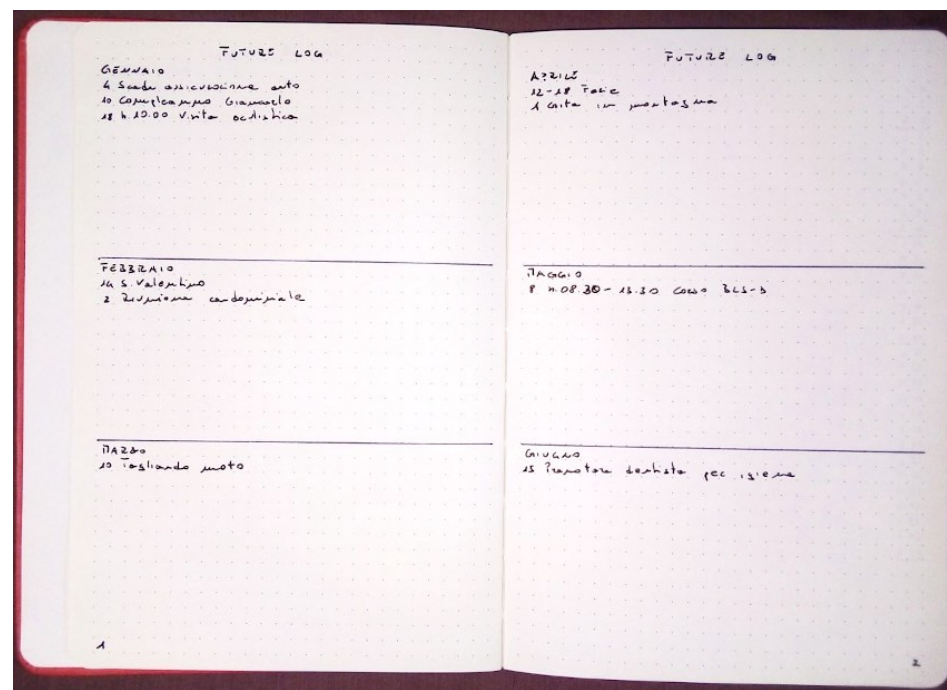 FUTURE LOG
GENNAIO
4 Scade assicurazione auto
10 Compleanno Giancarlo
18 h.10.00 Visita oculistica
FEBBRAIO
14 S. Valentino
2 Riunione condominiale
MARZO
10 Tagliando moto
1
FUTURE LOG
APRILE
12-18 Ferie
1 Gita in montagna
MAGGIO
8 h.08.30 - 13.30 Corso BLS-D
GIUGNO
15 Prenotare dentista per igiene
2